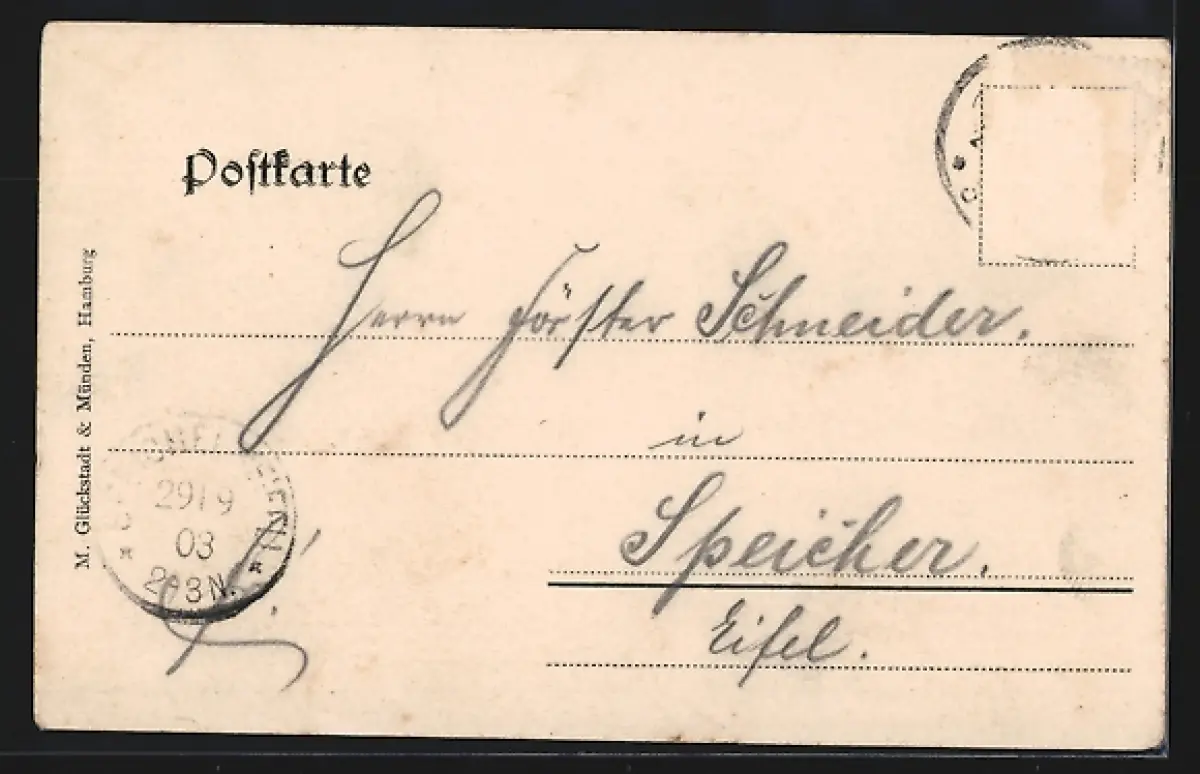 Postkarte
Herrn Förster Schneider.
in
Speicher.
Eifel.
M. Glückstadt & Münden, Hamburg
29/9
03
2-3N.